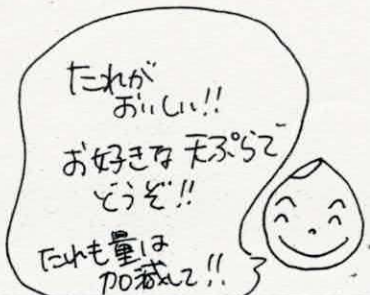 たれが
おいしい!!
お好きな天ぷらで
どうぞ!!
たれも量は
加減して!!